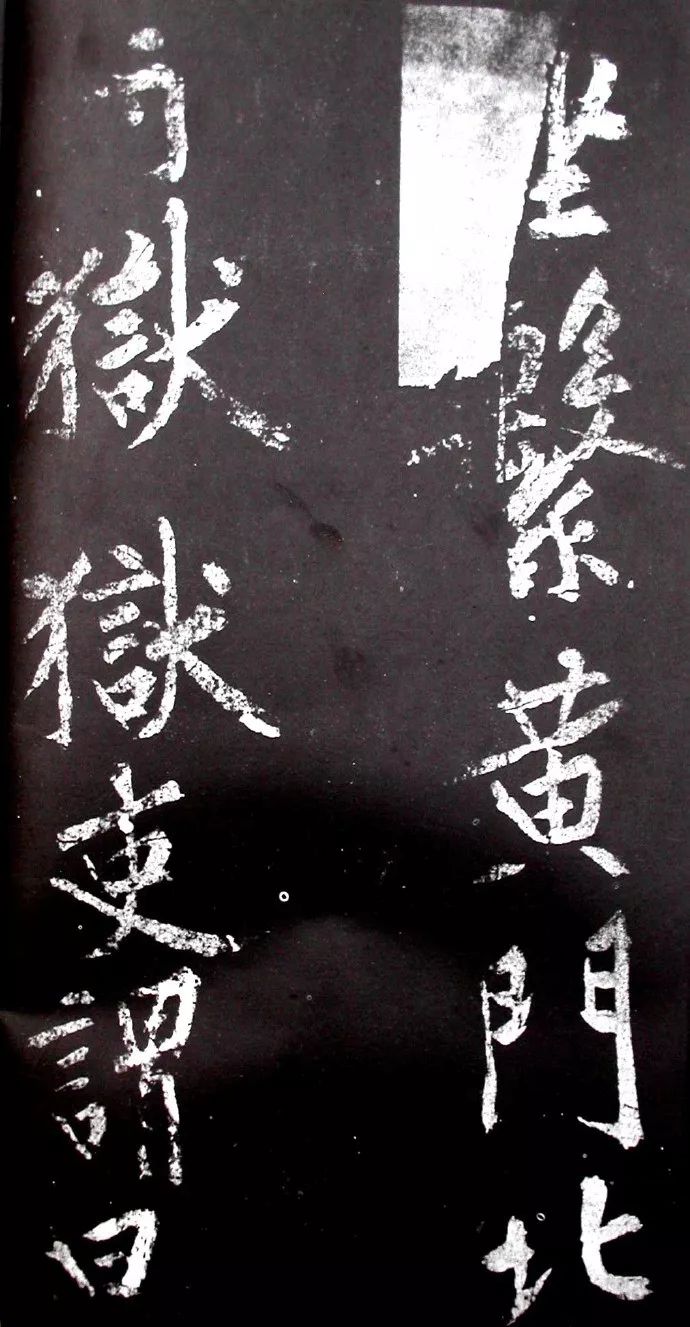 坐繫黃門北
寺獄獄吏謂曰